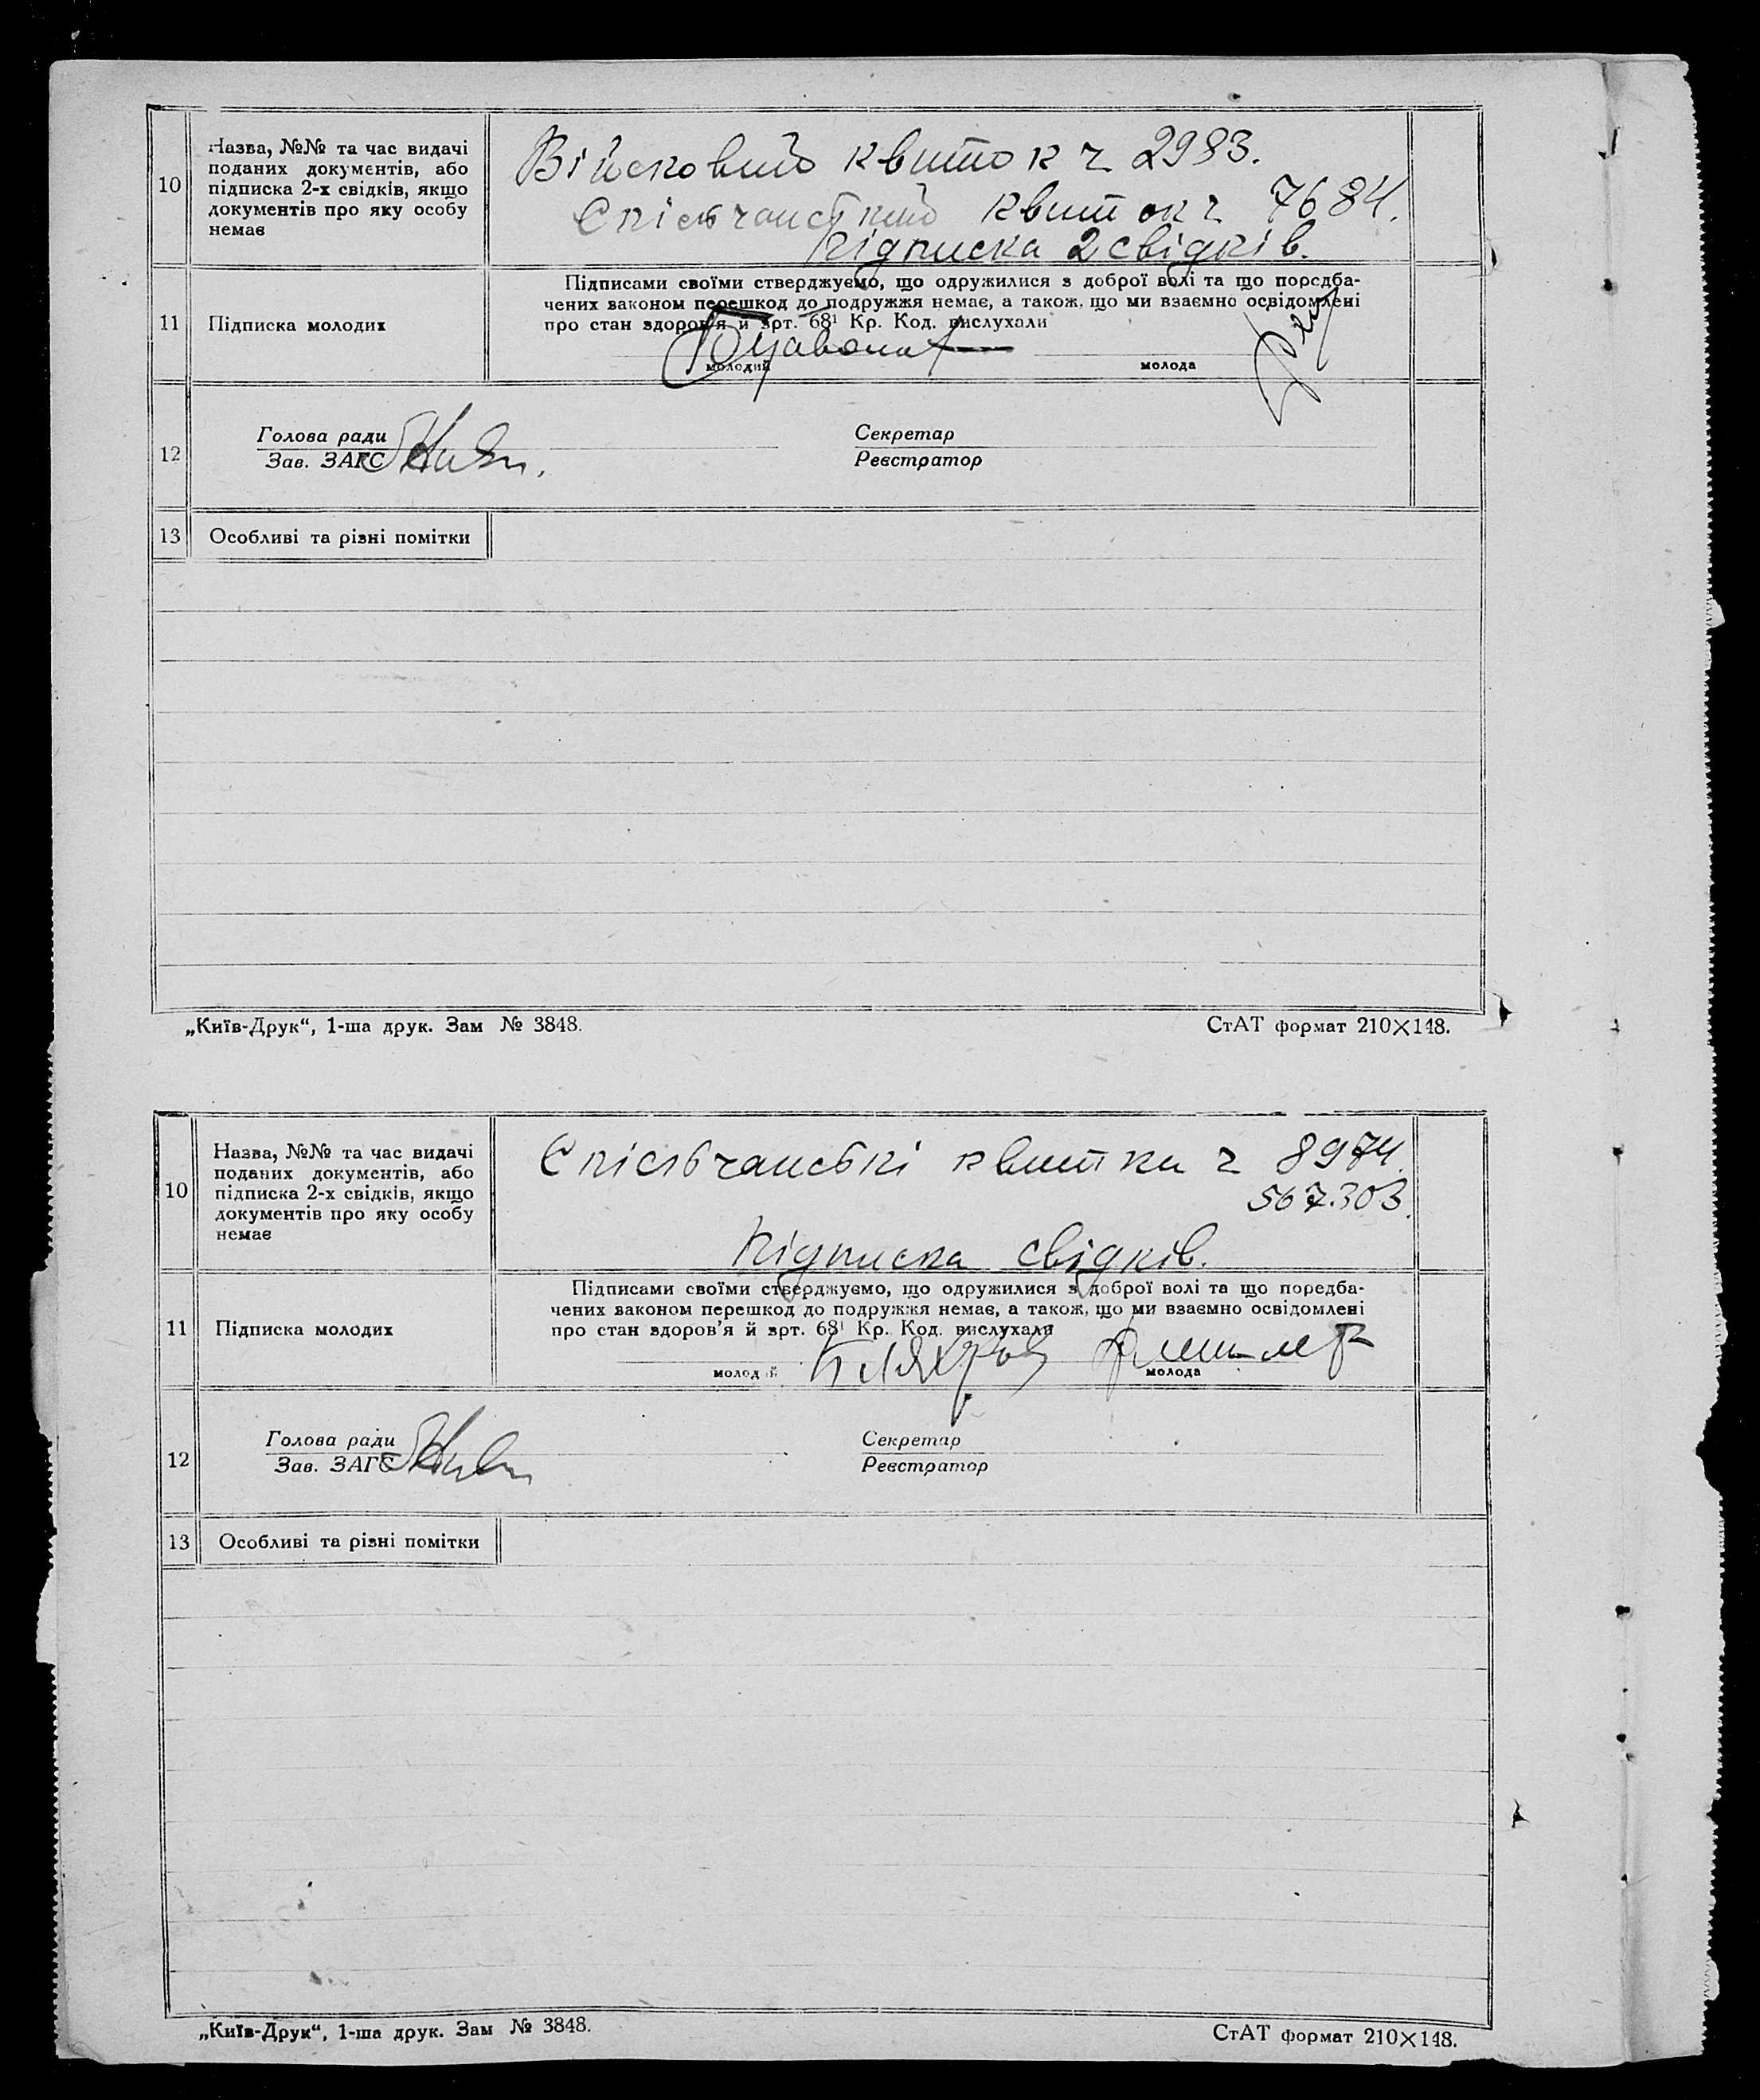 10
Назва, №№ та час видачі
поданих документів, або
підписка 2-х свідків, якщо
документів про яку особу
немає
Військовий квиток ч 2983.
Спілчанський квиток ч 7684.
підписка 2 свідків.
11
Підписка молодих
Підписами своїми стверджуємо, що одружилися з доброї волі та що передба-
чених законом перешкод до подружжя немає, а також, що ми взаємно освідомлені
про стан здоров'я й арт. 68¹ Кр. Код. вислухали
молодий
молода
12
Голова ради
Зав. ЗАГС
Секретар
Реєстратор
13
Особливі та різні помітки
„Київ-Друк“, 1-ша друк. Зам № 3848.
СтАТ формат 210×148.
10
Назва, №№ та час видачі
поданих документів, або
підписка 2-х свідків, якщо
документів про яку особу
немає
Спілчанські квитки ч 8974.
567.303.
підписка свідків.
11
Підписка молодих
Підписами своїми стверджуємо, що одружилися з доброї волі та що передба-
чених законом перешкод до подружжя немає, а також, що ми взаємно освідомлені
про стан здоров'я й арт. 68¹ Кр. Код. вислухали
молодий
молода
12
Голова ради
Зав. ЗАГС
Секретар
Реєстратор
13
Особливі та різні помітки
„Київ-Друк“, 1-ша друк. Зам № 3848.
СтАТ формат 210×148.